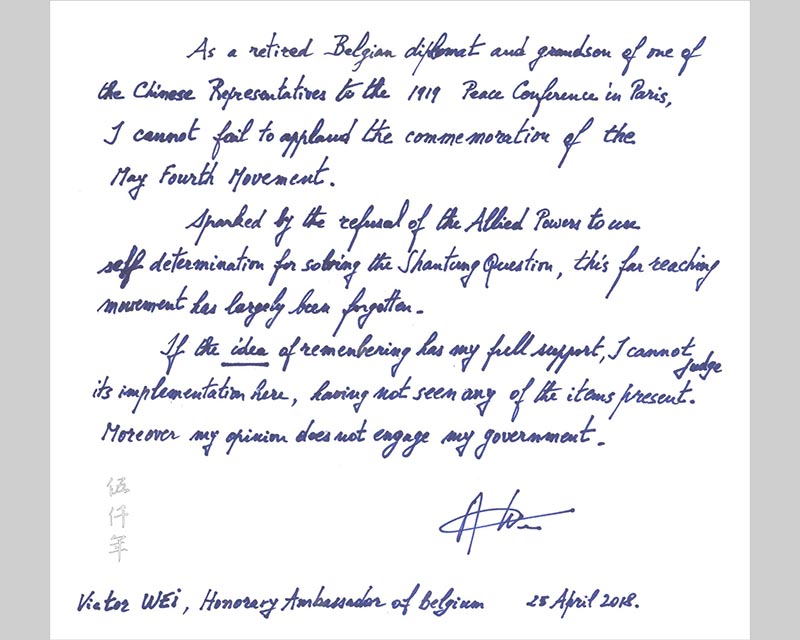 As a retired Belgian diplomat and grandson of one of
the Chinese Representatives to the 1919 Peace Conference in Paris,
I cannot fail to applaud the commemoration of the
May Fourth Movement.
Sparked by the refusal of the Allied Powers to use
self determination for solving the Shantung Question, this far reaching
movement has largely been forgotten.
If the idea of remembering has my full support, I cannot judge
its implementation here, having not seen any of the items present.
Moreover my opinion does not engage my government.
伍
仟
年
Victor WEI, Honorary Ambassador of Belgium 25 April 2018.